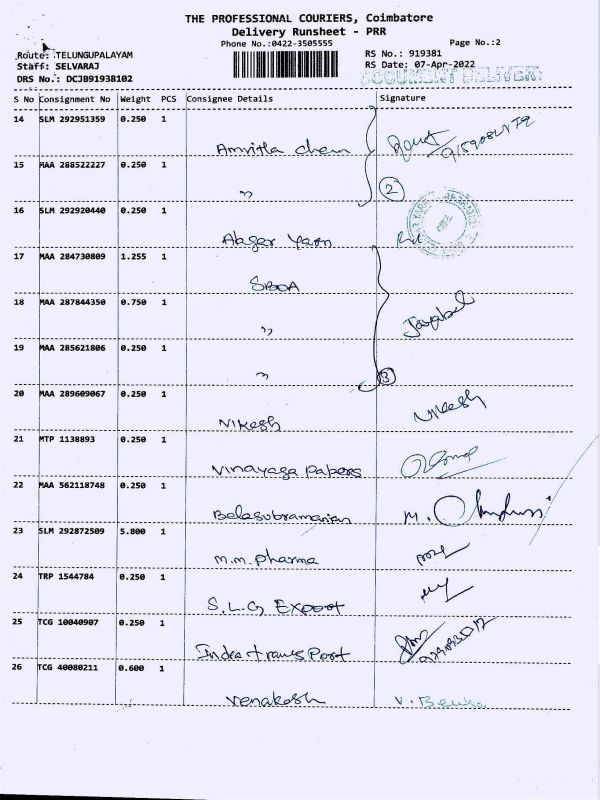 THE PROFESSIONAL COURIERS, Coimbatore
Delivery Runsheet - PRR
Phone No.:0422-3505555
Page No.:2
Route: TELUNGUPALAYAM
RS No.: 919381
Staff: SELVARAJ
RS Date: 07-Apr-2022
DRS No.: DCJB91938102
DOCUMENT DELIVERY
S No Consignment No Weight PCS Consignee Details Signature
14 SLM 292951359 0.250 1
Amritha chem
15 MAA 288522227 0.250 1
" 2
16 SLM 292920440 0.250 1
Yarn
17 MAA 284730809 1.255 1
SBOA
18 MAA 287844350 0.750 1
"
19 MAA 285621806 0.250 1
" 3
20 MAA 289609067 0.250 1
Nikesh Nikesh
21 MTP 1138893 0.250 1
Vinayaga Papers
22 MAA 562118748 0.250 1
Balasubramanian M.
23 SLM 292872509 5.800 1
M.M. Pharma
24 TRP 1544784 0.250 1
S.L.G Export
25 TCG 10040907 0.250 1
Index trans Port
26 TCG 40080211 0.600 1
Venakesh V.